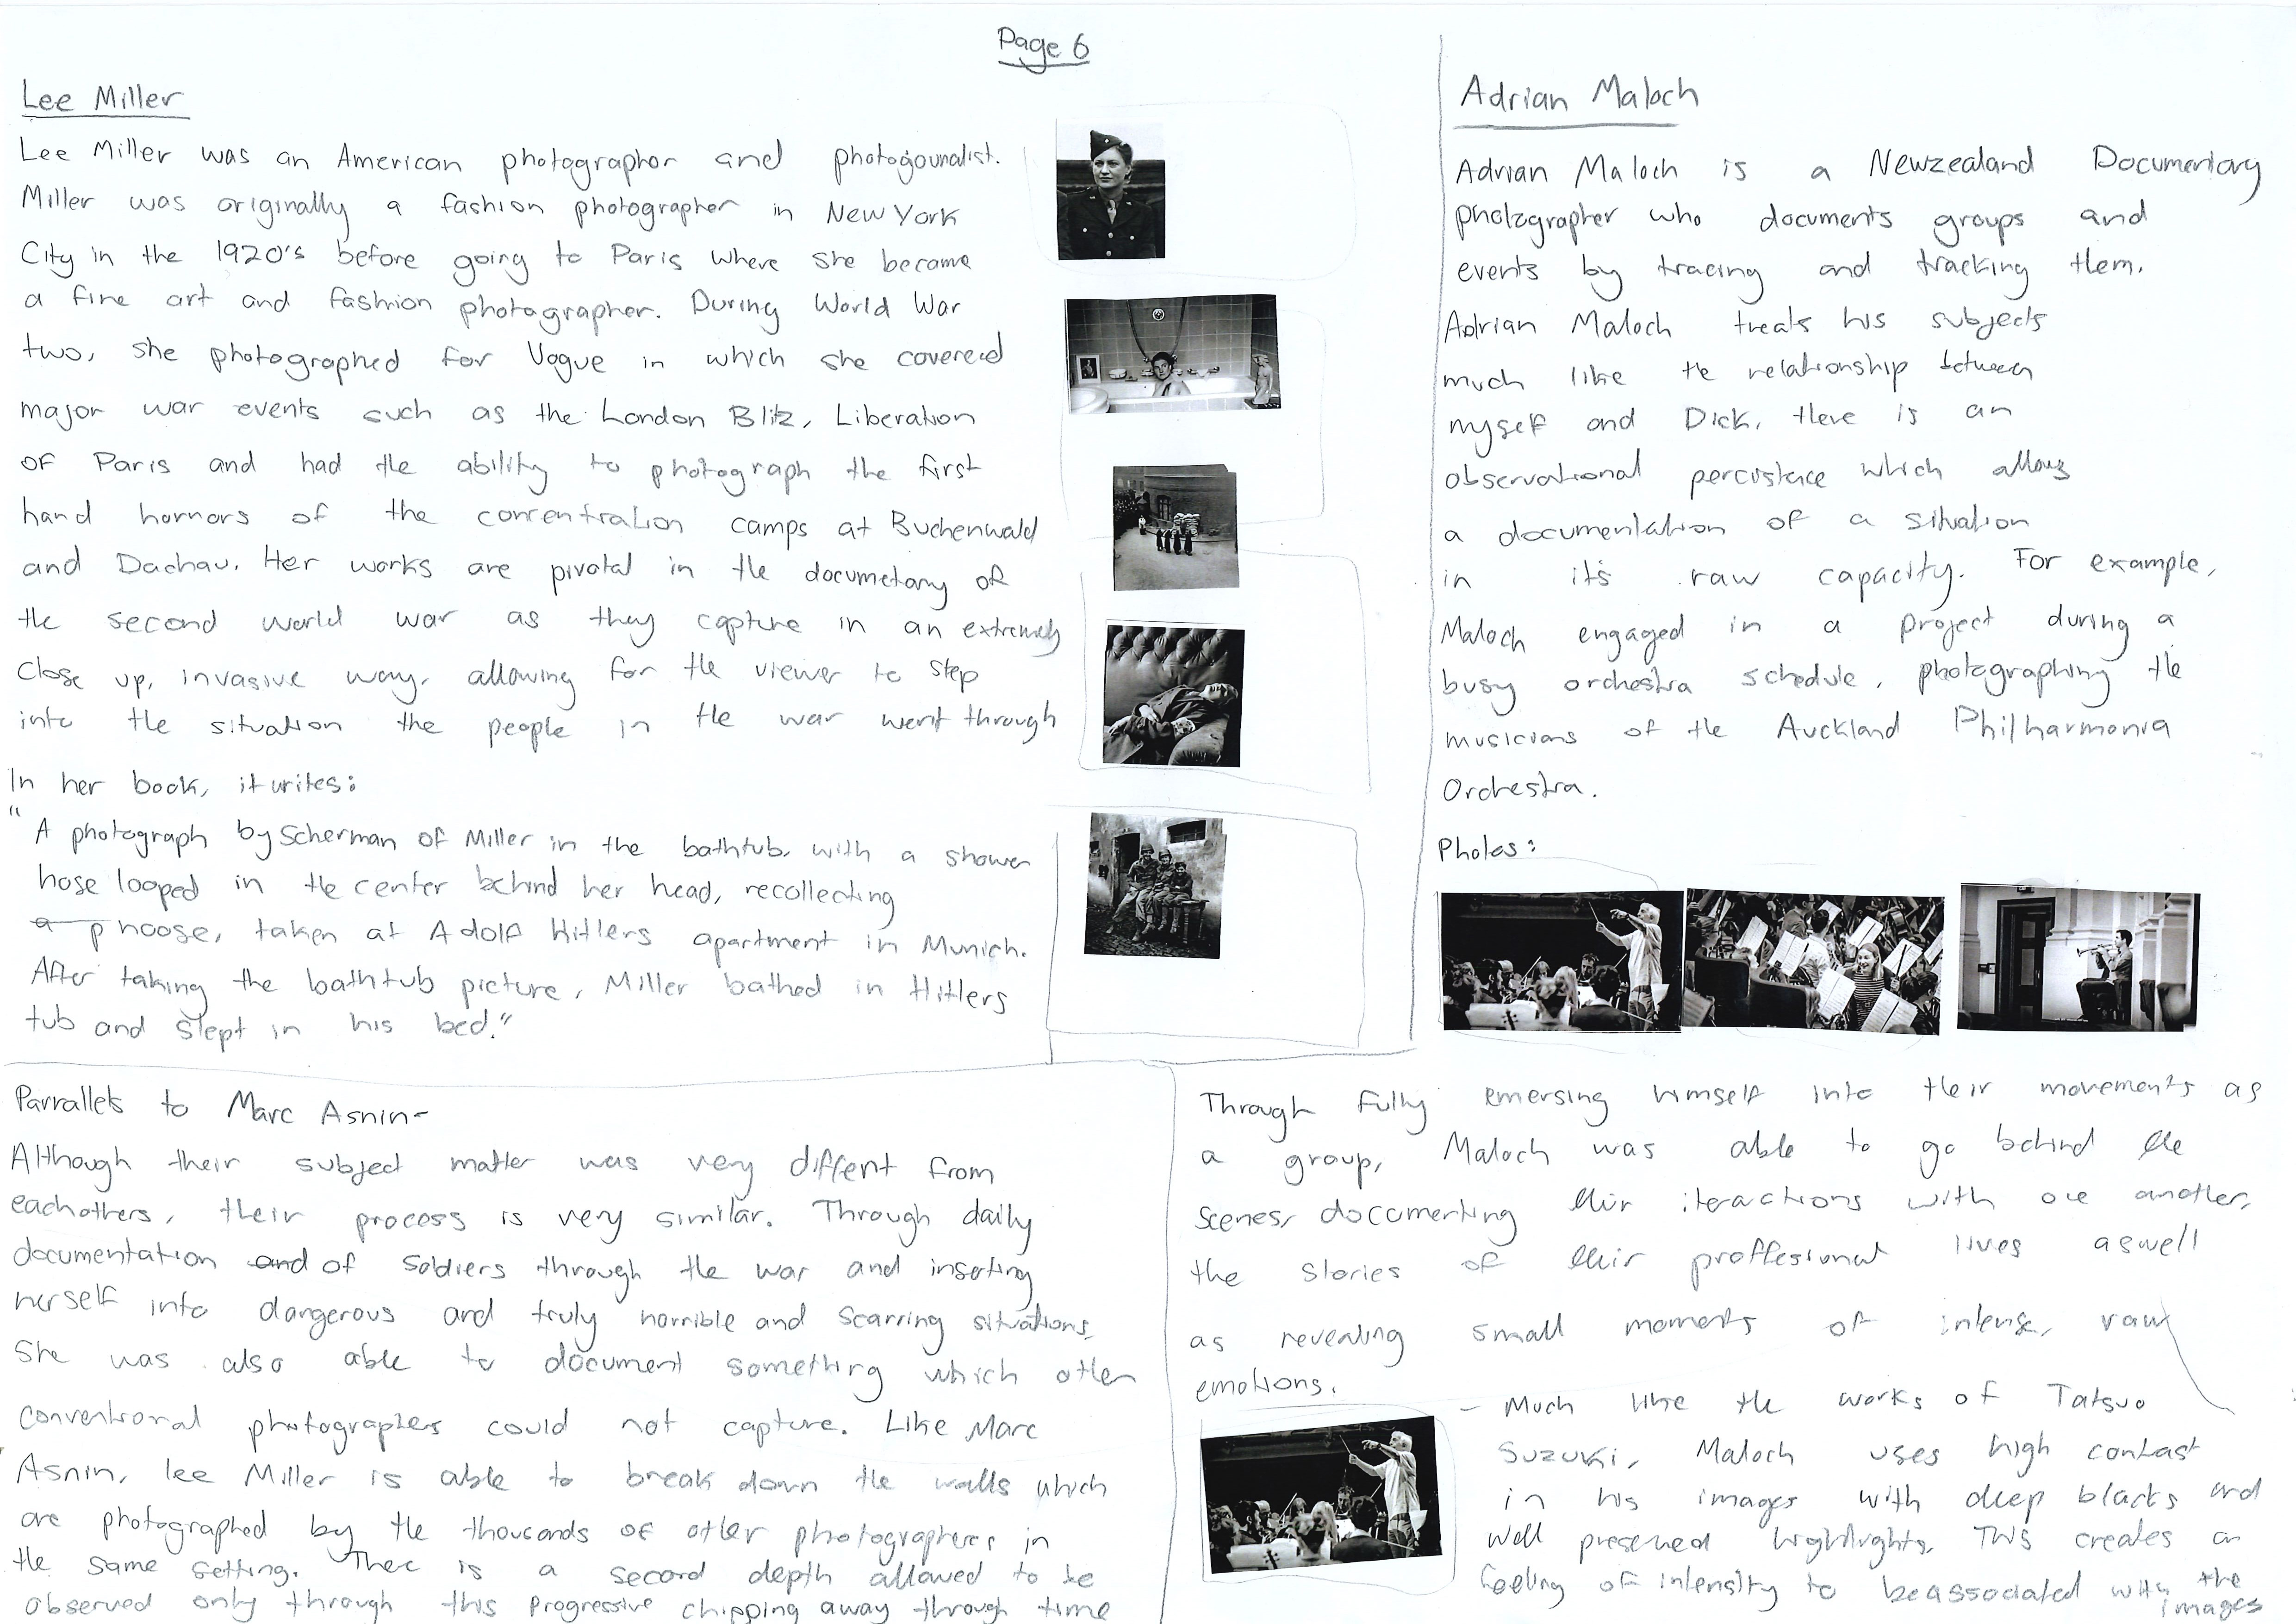 Page 6
Lee Miller
Lee Miller was an American photographer and photojounalist.
Miller was originally a fashion photographer in New York
City in the 1920's before going to Paris where she became
a fine art and fashion photographer. During World War
two, she photographed for Vogue in which she covered
major war events such as the London Blitz, Liberation
of Paris and had the ability to photograph the first
hand horrors of the concentration camps at Buchenwald
and Dachau. Her works are pivotal in the documetary of
the second world war as they capture in an extremely
close up, invasive way, allowing for the viewer to step
into the situation the people in the war went through
In her book, it writes:
"A photograph by Scherman of Miller in the bathtub, with a shower
hose looped in the center behind her head, recollecting
a noose, taken at Adolf Hitlers apartment in Munich.
After taking the bathtub picture, Miller bathed in Hitlers
tub and slept in his bed."
Parrallels to Marc Asnin-
Although their subject matter was very diffent from
eachothers, their process is very similar. Through daily
documentation and of soldiers through the war and inserting
herself into dangerous and truly horrible and scarring situations,
She was also able to document something which other
conventional photographers could not capture. Like Marc
Asnin, lee Miller is able to break down the walls which
are photographed by the thousands of other photographers in
the same setting. There is a second depth allowed to be
observed only through this progressive chipping away through time
Adrian Maloch
Adrian Maloch is a Newzealand Documentary
photographer who documents groups and
events by tracing and tracking them.
Adrian Maloch treats his subjects
much like the relationship between
myself and Dick, there is an
observational percistence which allows
a documentation of a situation
in it's raw capacity. For example,
Maloch engaged in a project during a
busy orchestra schedule, photographing the
musicians of the Auckland Philharmonia
Orchestra.
Photos:
Through fully emersing himself into their movements as
a group, Maloch was able to go behind the
scenes, documenting their iteractions with one another,
the stories of their proffessional lives aswell
as revealing small moments of intense, raw
emotions.
- Much like the works of Tatsuo
Suzuki, Maloch uses high contast
in his images with deep blacks and
well preserved highlights. This creates an
feeling of intensity to be associated with the
images